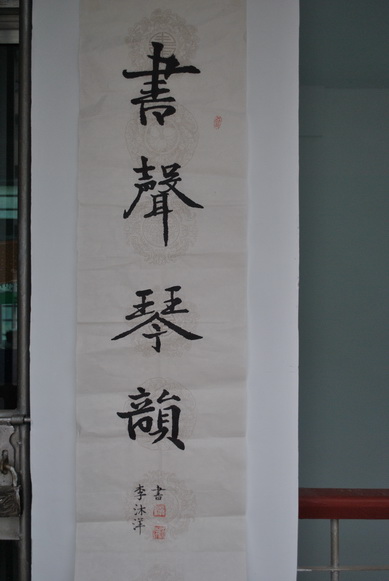 書聲琴韻
李沐洋
書